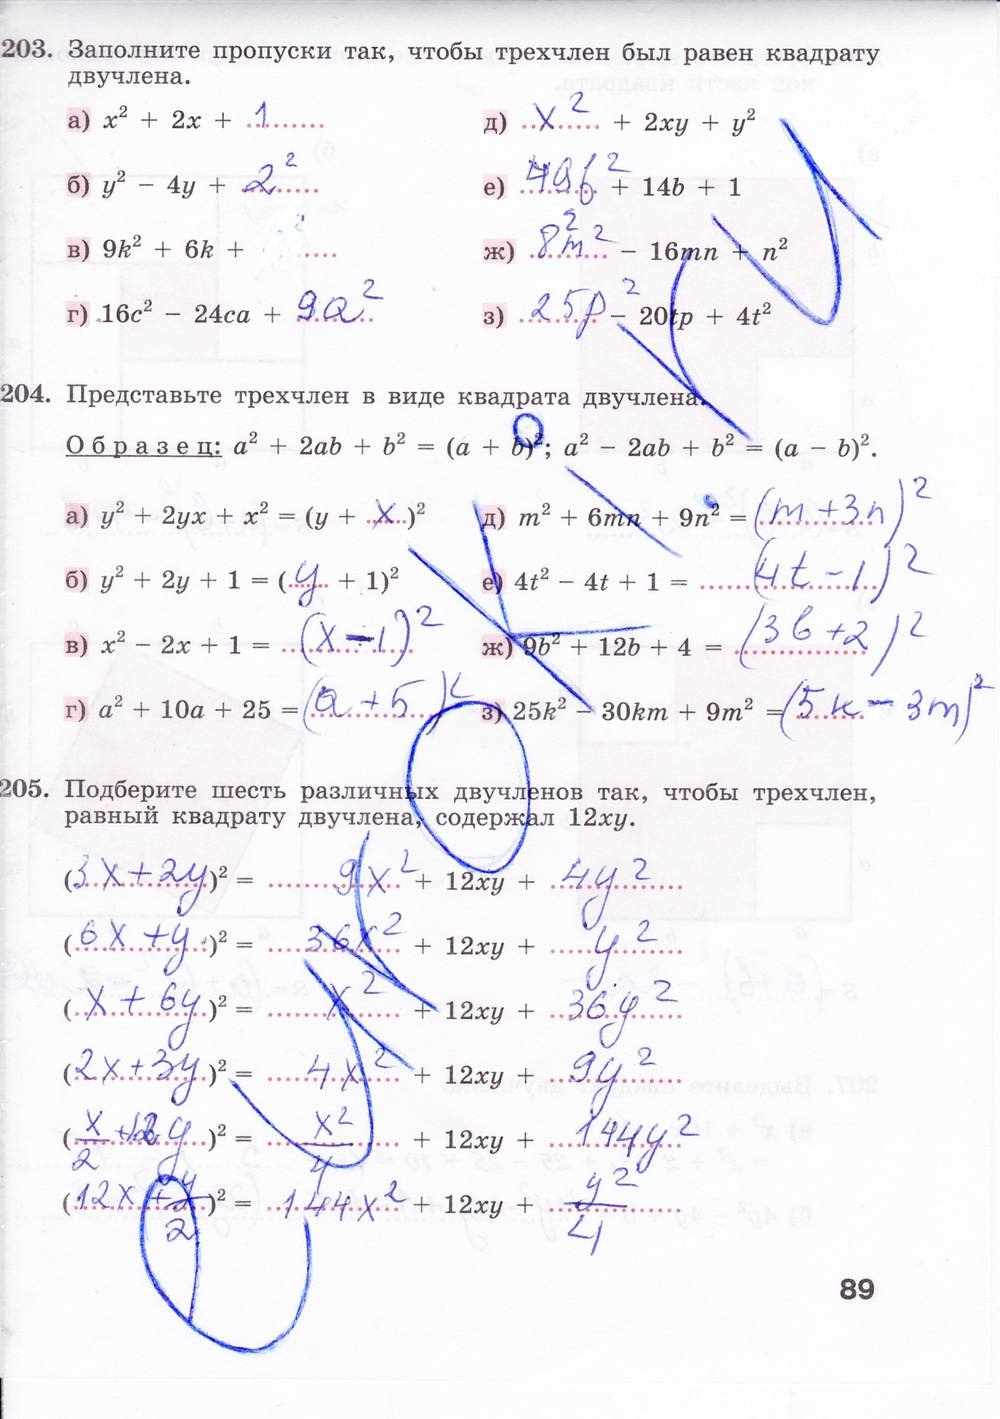 203. Заполните пропуски так, чтобы трехчлен был равен квадрату
двучлена.
а) x² + 2x + 1
б) y² − 4y + 2²
в) 9k² + 6k +
г) 16c² − 24ca + 9a²
д) x² + 2xy + y²
е) 49b² + 14b + 1
ж) 8²m² − 16mn + n²
з) 25p² − 20tp + 4t²
204. Представьте трехчлен в виде квадрата двучлена.
Образец: a² + 2ab + b² = (a + b)²; a² − 2ab + b² = (a − b)².
а) y² + 2yx + x² = (y + x)²
б) y² + 2y + 1 = (y + 1)²
в) x² − 2x + 1 = (x − 1)²
г) a² + 10a + 25 = (a + 5)²
д) m² + 6mn + 9n² = (m + 3n)²
е) 4t² − 4t + 1 = (4t − 1)²
ж) 9b² + 12b + 4 = (3b + 2)²
з) 25k² − 30km + 9m² = (5k − 3m)²
205. Подберите шесть различных двучленов так, чтобы трехчлен,
равный квадрату двучлена, содержал 12xy.
(3x + 2y)² = 9x² + 12xy + 4y²
(6x + y)² = 36x² + 12xy + y²
(x + 6y)² = x² + 12xy + 36y²
(2x + 3y)² = 4x² + 12xy + 9y²
(x/2 + 12y)² = x²/4 + 12xy + 144y²
(12x + y/2)² = 144x² + 12xy + y²/4
89